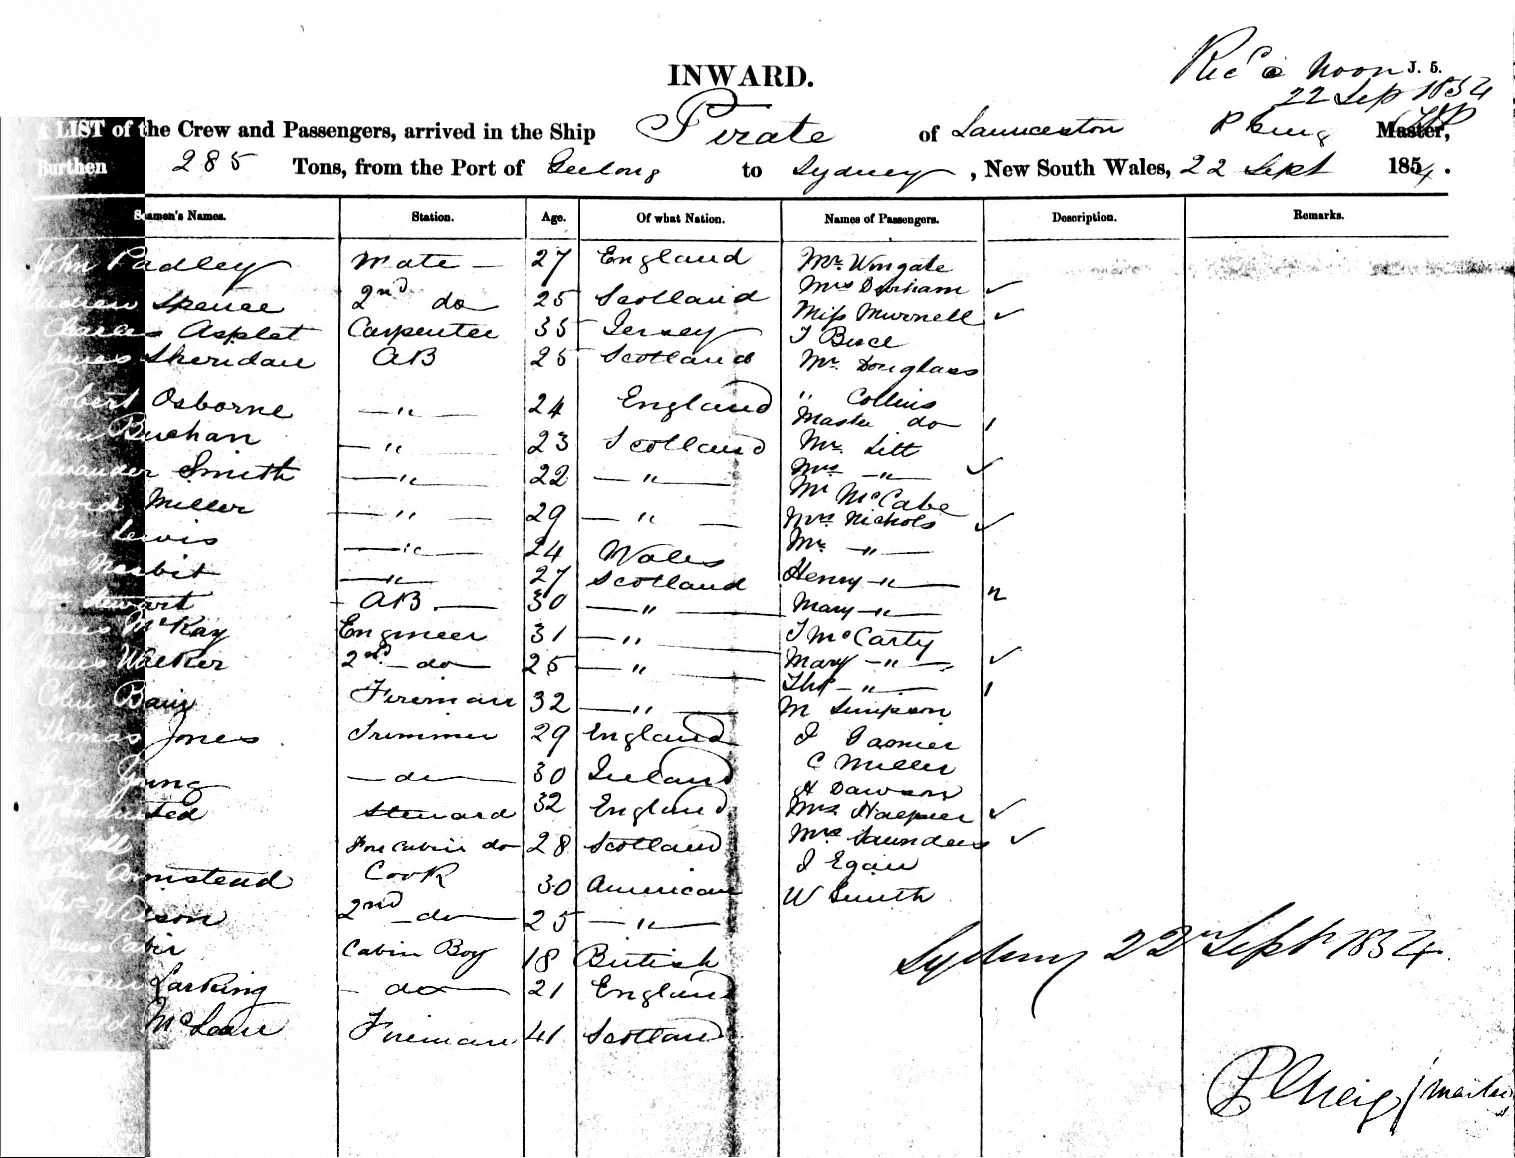 INWARD.
J. 5.
Rec'd Noon
22 Sep 1854
A LIST of the Crew and Passengers, arrived in the Ship Pirate of Launceston Master,
Burthen 285 Tons, from the Port of Geelong to Sydney, New South Wales, 22 Sept 1854.
Seamen's Names. Station. Age. Of what Nation. Names of Passengers. Description. Remarks.
John Padley Mate — 27 England Mr. Wingate
Spence 2nd do 25 Scotland Mrs Durham ✓
Charles Asplet Carpenter 35 Jersey Miss Murnell ✓
James Sheridan AB 25 Scotland Mr. Douglass
Robert Osborne — " — 24 England " Collins
John Buchan — " 23 Scotland Master do
Alexander Smith — " — 22 — " — Mr. Litt
Mrs — " — ✓
David Miller — " — 29 — " — Mr McCabe
John Lewis — " — 24 Wales Mrs Nichols ✓
Mr. — " —
Wm Nesbit — " — 27 Scotland Henry — " —
Wm Stewart AB — 30 — " — Mary — " —
James McKay Engineer 31 — " — T McCarty
James Walker 2nd do 25 — " — Mary — " — ✓
Thos — " —
Colin Bain Fireman 32 — " — M Simpson
Thomas Jones Trimmer 29 England
George Young — do — 30 Ireland C Miller
H Dawson
Steward 32 England Mrs ✓
Fore Cabin do 28 Scotland Mrs Saunders ✓
John Armstead Cook 30 American J Egan
Thos Wilson 2nd do 25 — " — W Smith
James Cabin Boy 18 British
Stephen Larking do 21 England
McLean Fireman 41 Scotland
Sydney 22nd Sept 1854
Master